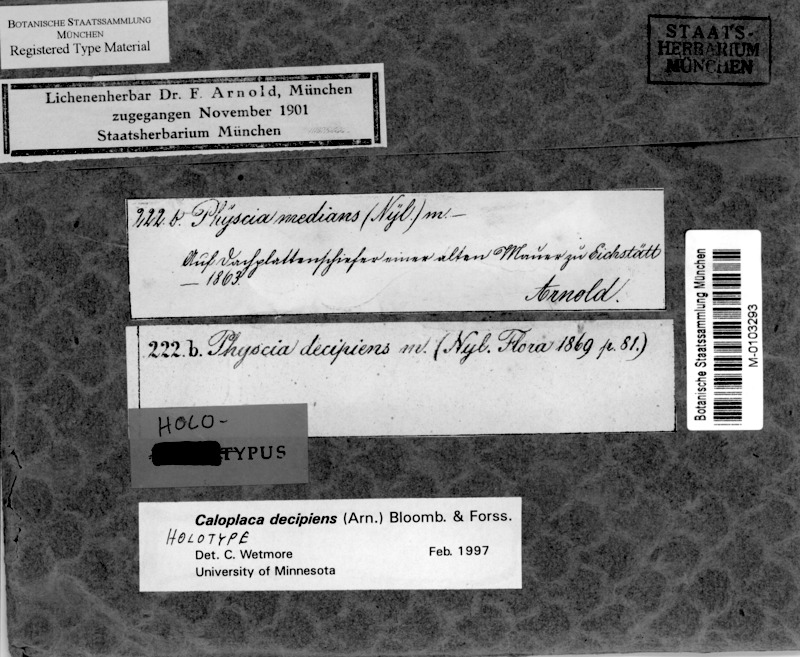 BOTANISCHE STAATSSAMMLUNG
MÜNCHEN
Registered Type Material
STAATS-
HERBARIUM
MÜNCHEN
Lichenenherbar Dr. F. Arnold, München
zugegangen November 1901
Staatsherbarium München
222. b. Physcia medians (Nyl.) m. –
Auf Dachplattenschiefer einer alten Mauer zu Eichstätt
– 1863.
Arnold.
222. b. Physcia decipiens m. (Nyl. Flora 1869 p. 81.)
HOLO-
TYPUS
Caloplaca decipiens (Arn.) Bloomb. & Forss.
HOLOTYPE
Det. C. Wetmore Feb. 1997
University of Minnesota
Botanische Staatssammlung München
M-0103293